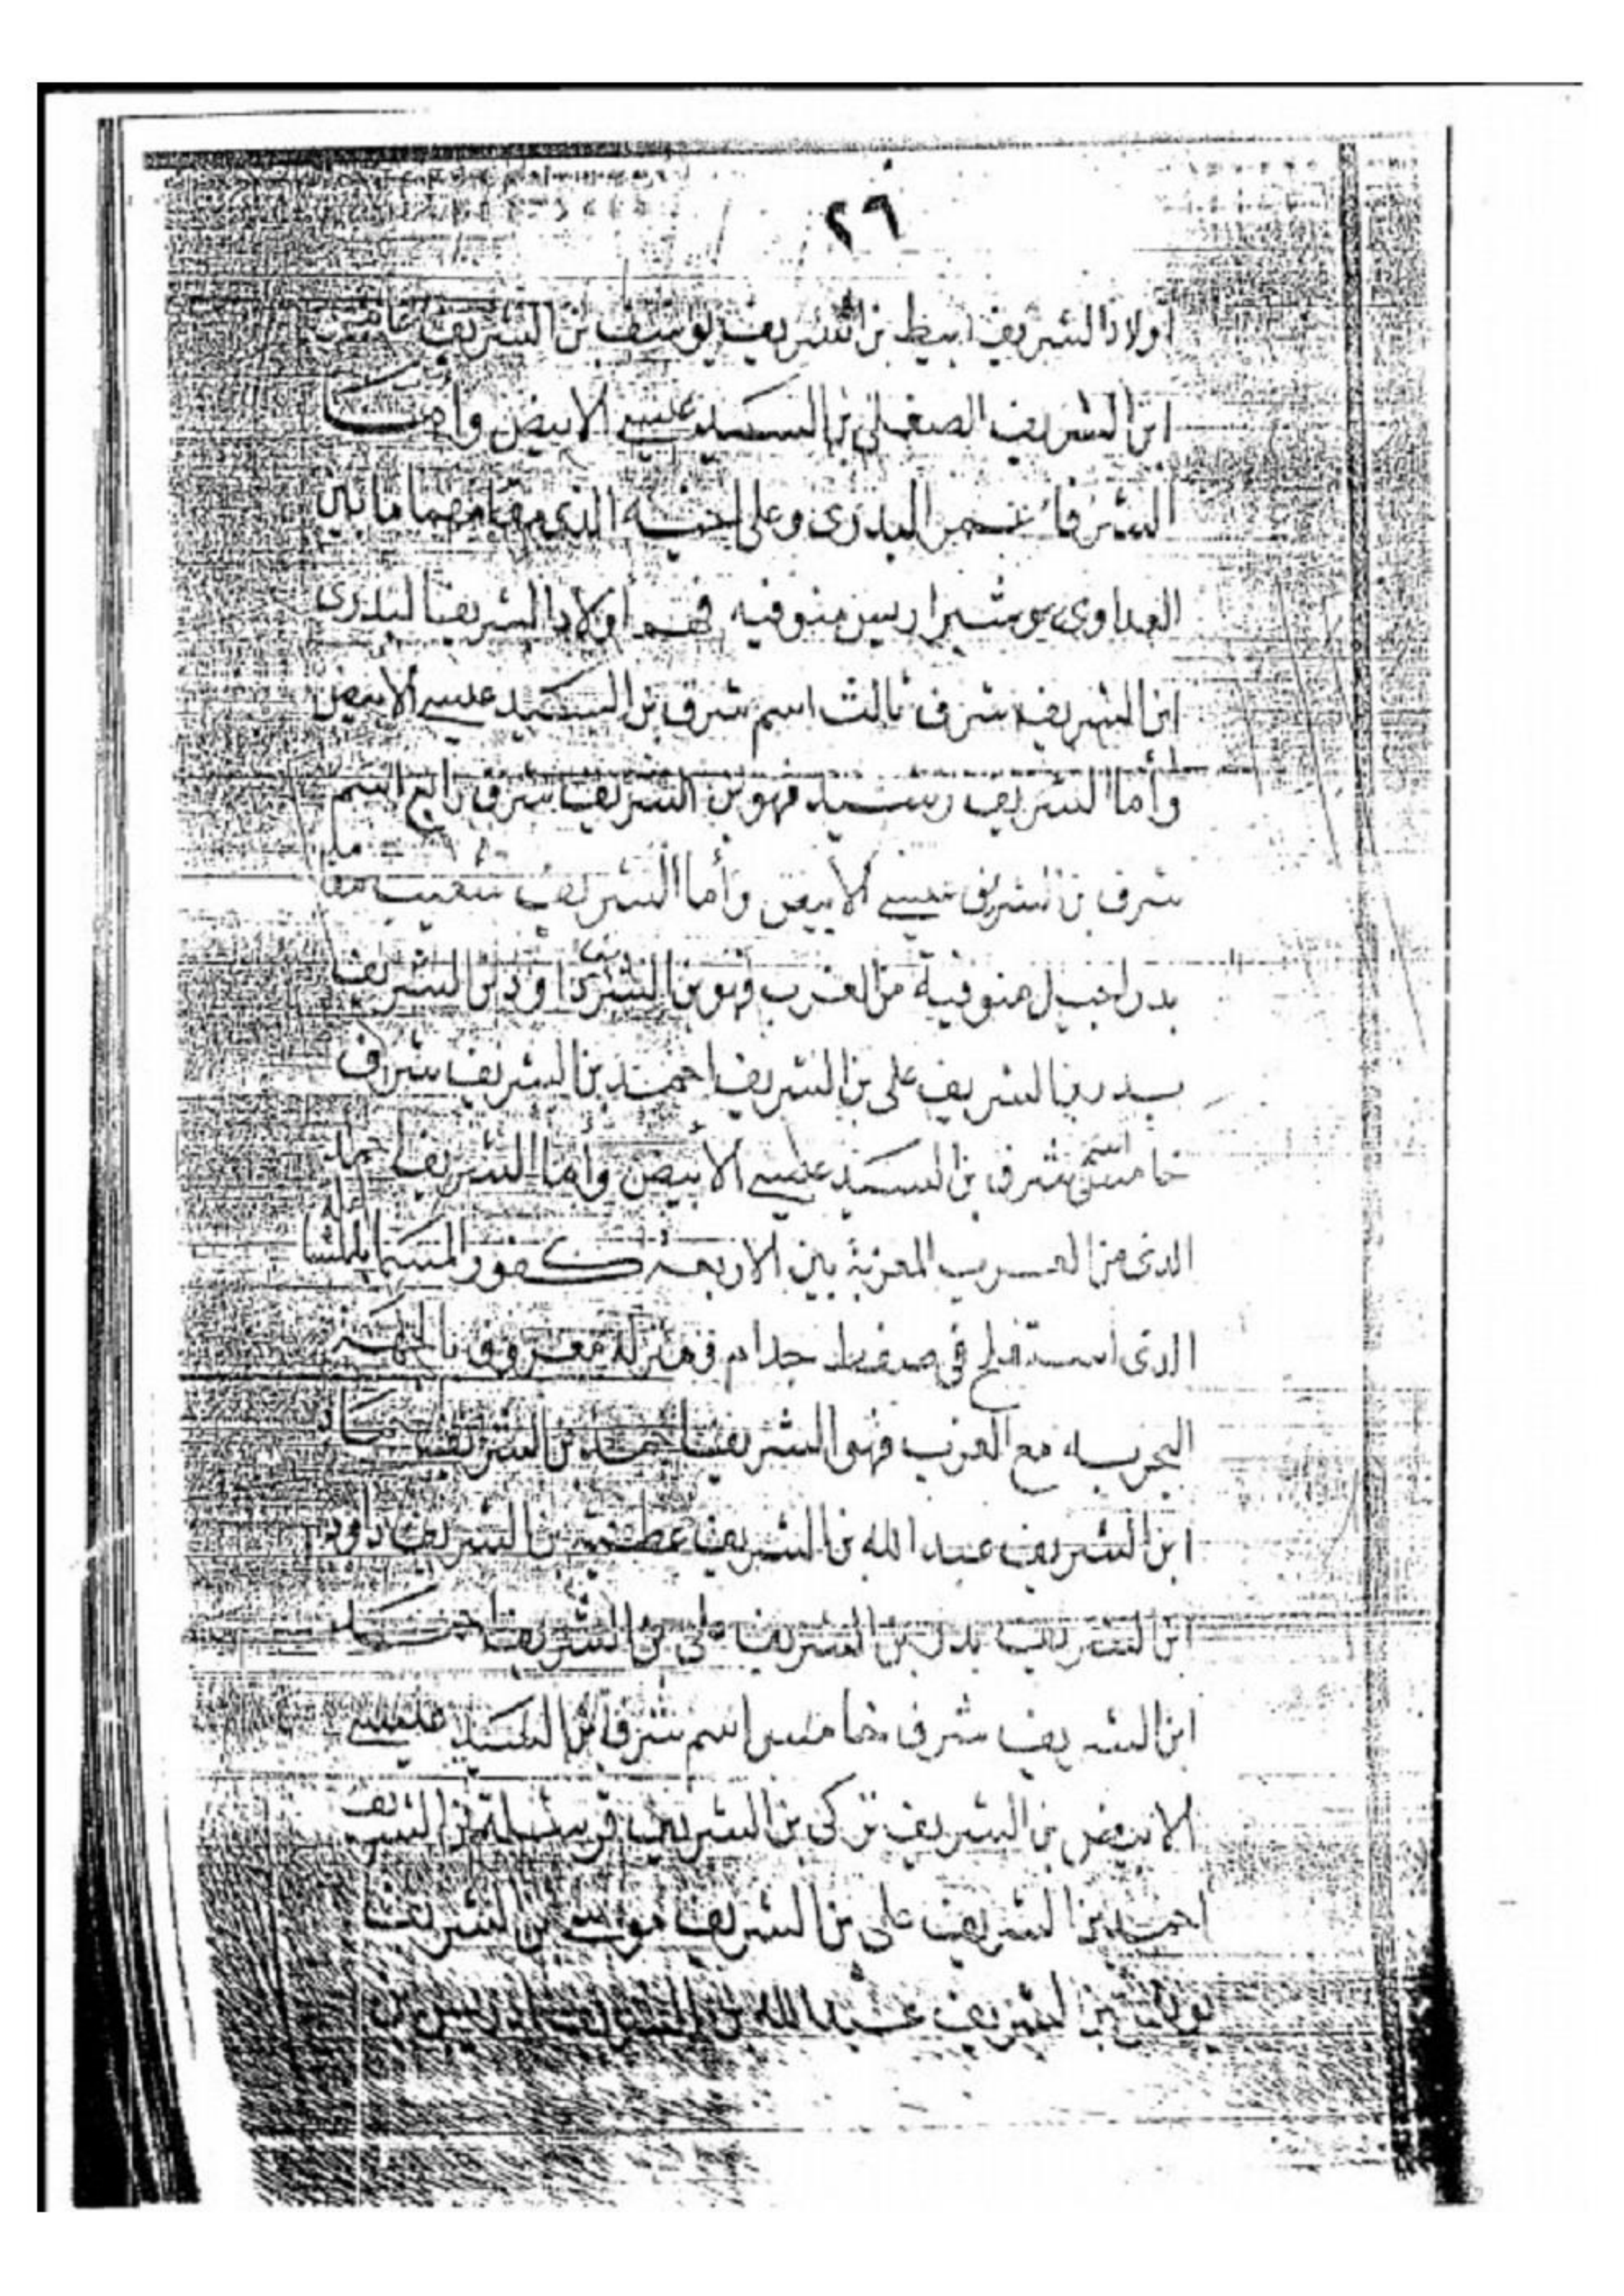 ٢٩
أولاد الشريف ابيظ بن الشريف يوسف بن الشريف عامر
ابن الشريف الصقلى بن السيد عيسى الابيض وأما
الشرفا البدرى وعلى اخيه الذى مقامهما مابين
العداوى منوفيه فهم أولاد الشريف البدرى
ابن الشريف شرف ثالث اسم شرف بن السيد عيسى الابيض
وأما الشريف رشيد فهو بن الشريف شرف رابع اسم
شرف بن الشريف عيسى الابيض وأما الشريف شعيب
منوفية من الغرب فهو بن الشريف داود بن الشريف
بدر بن الشريف على بن الشريف احمد بن الشريف شرف
خامس اسم شرف بن السيد عيسى الابيض وأما الشريف حماد
الذى من الغرب بين الاربعه كفور
الذى فى جدام فى منزله معروف بالجهة
البحريه مع الغرب فهو الشريف احمد بن الشريف حماد
ابن الشريف عبد الله بن الشريف عطيه بن الشريف داود
ابن الشريف بدر بن الشريف على بن الشريف احمد
ابن الشريف شرف خامس اسم شرف بن السيد عيسى
الابيض بن الشريف تركى بن الشريف قرشلة بن الشريف
احمد بن الشريف على بن الشريف موسى بن الشريف
يونس بن الشريف عبد الله بن الشريف ادريس بن